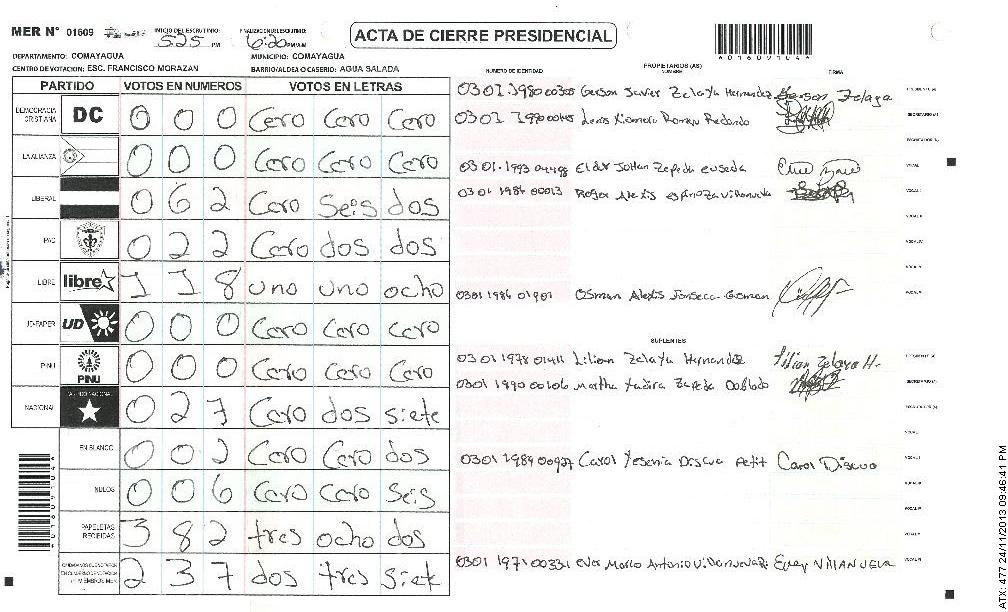 MER Nº 01609 INICIO DEL ESCRUTINIO: 5:25 PM FINALIZACION ESCRUTINIO: 6:20 PM/AM
ACTA DE CIERRE PRESIDENCIAL
A01609104A
DEPARTAMENTO: COMAYAGUA MUNICIPIO: COMAYAGUA
CENTRO DE VOTACION: ESC. FRANCISCO MORAZAN BARRIO/ALDEA O CASERIO: AGUA SALADA
NUMERO DE IDENTIDAD PROPIETARIOS (AS) NOMBRE FIRMA
PARTIDO VOTOS EN NUMEROS VOTOS EN LETRAS
DEMOCRACIA CRISTIANA DC 0 0 0 Cero Cero Cero
LA ALIANZA 0 0 0 Cero Cero Cero
LIBERAL 0 6 2 Cero Seis dos
PAC 0 2 2 Cero dos dos
LIBRE libre 1 1 8 uno uno ocho
UD-FAPER UD 0 0 0 Cero Cero Cero
PINU PINU 0 0 0 Cero Cero Cero
NACIONAL 0 2 7 Cero dos siete
EN BLANCO 0 0 2 Cero Cero dos
NULOS 0 0 6 Cero Cero Seis
PAPELETAS RECIBIDAS 3 8 2 tres ocho dos
2 3 7 dos tres Siete
Gerson Javier Zelaya Hernandez Gerson Zelaya PRESIDENTE (A)
SECRETARIO (A)
ESCRUTADOR (A)
0301-1993 VOCAL
0301 1984 00013 Roger Alexis VOCAL I
VOCAL II
VOCAL IV
VOCAL V
0301 1986 01901 Osman Alexis Fonseca Guzman
SUPLENTES
0301 1978 Lilian Zelaya Hernandez Lilian Zelaya H. PRESIDENTE (A)
0301 1990 00106 Martha Yadira Zepeda Doblado SECRETARIO (A)
ESCRUTADOR (A)
0301 1989 00927 Carol Yesenia Discua Petit Carol Discua
0301 1971 00331 Marco Antonio
ATX: 477 24/11/2013 09:46:41 PM